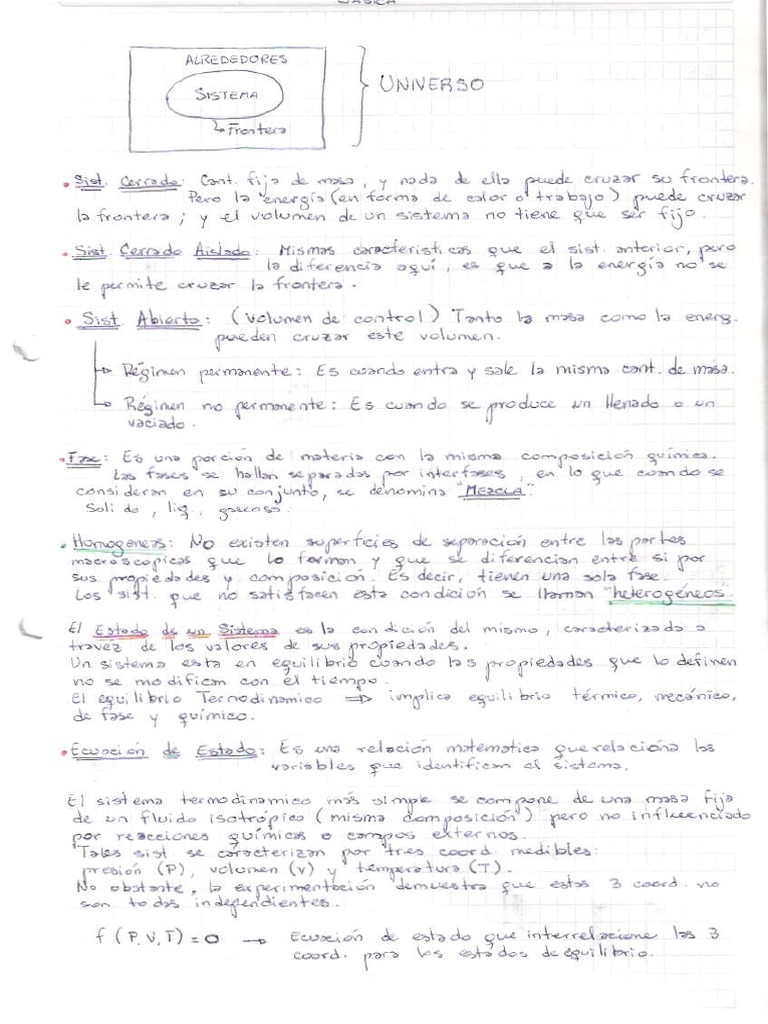 BASICA
ALREDEDORES
SISTEMA
Frontera
UNIVERSO
• Sist. Cerrado: Cant. fija de masa, y nada de ella puede cruzar su frontera.
Pero la energía (en forma de calor o trabajo) puede cruzar
la frontera; y el volumen de un sistema no tiene que ser fijo.
• Sist. Cerrado Aislado: Mismas caracteristicas que el sist. anterior, pero
la diferencia aquí, es que a la energía no se
le permite cruzar la frontera.
• Sist. Abierto: (Volumen de control) Tanto la masa como la energ.
pueden cruzar este volumen.
Régimen permanente: Es cuando entra y sale la misma cant. de masa.
Régimen no permanente: Es cuando se produce un llenado o un
vaciado.
• Fase: Es una porción de materia con la misma composición química.
Las fases se hallan separadas por interfases, en lo que cuando se
consideran en su conjunto, se denomina "MEZCLA".
Solido, liq., gaseoso.
• Homogeneas: No existen superficies de separación entre las partes
macroscopicas que lo forman y que se diferencian entre si por
sus propiedades y composición. Es decir, tienen una sola fase.
Los sist. que no satisfacen esta condición se llaman "heterogéneos".
El Estado de un Sistema es la condición del mismo, caracterizada a
travez de los valores de sus propiedades.
Un sistema esta en equilibrio cuando las propiedades que lo definen
no se modifican con el tiempo.
El equilibrio Termodinamico ⇒ implica equilibrio térmico, mecánico,
de fase y químico.
• Ecuación de Estado: Es una relación matematica que relaciona las
variables que identifican al sistema.
El sistema termodinamico más simple se compone de una masa fija
de un fluido isotrópico (misma composición) pero no influenciado
por reacciones químicas o campos externos.
Tales sist. se caracterizan por tres coord. medibles:
presión (P), volumen (V) y temperatura (T).
No obstante, la experimentación demuestra que estas 3 coord. no
son todas independientes.
f (P,V,T) = 0 → Ecuación de estado que interrelacione las 3
coord. para los estados de equilibrio.